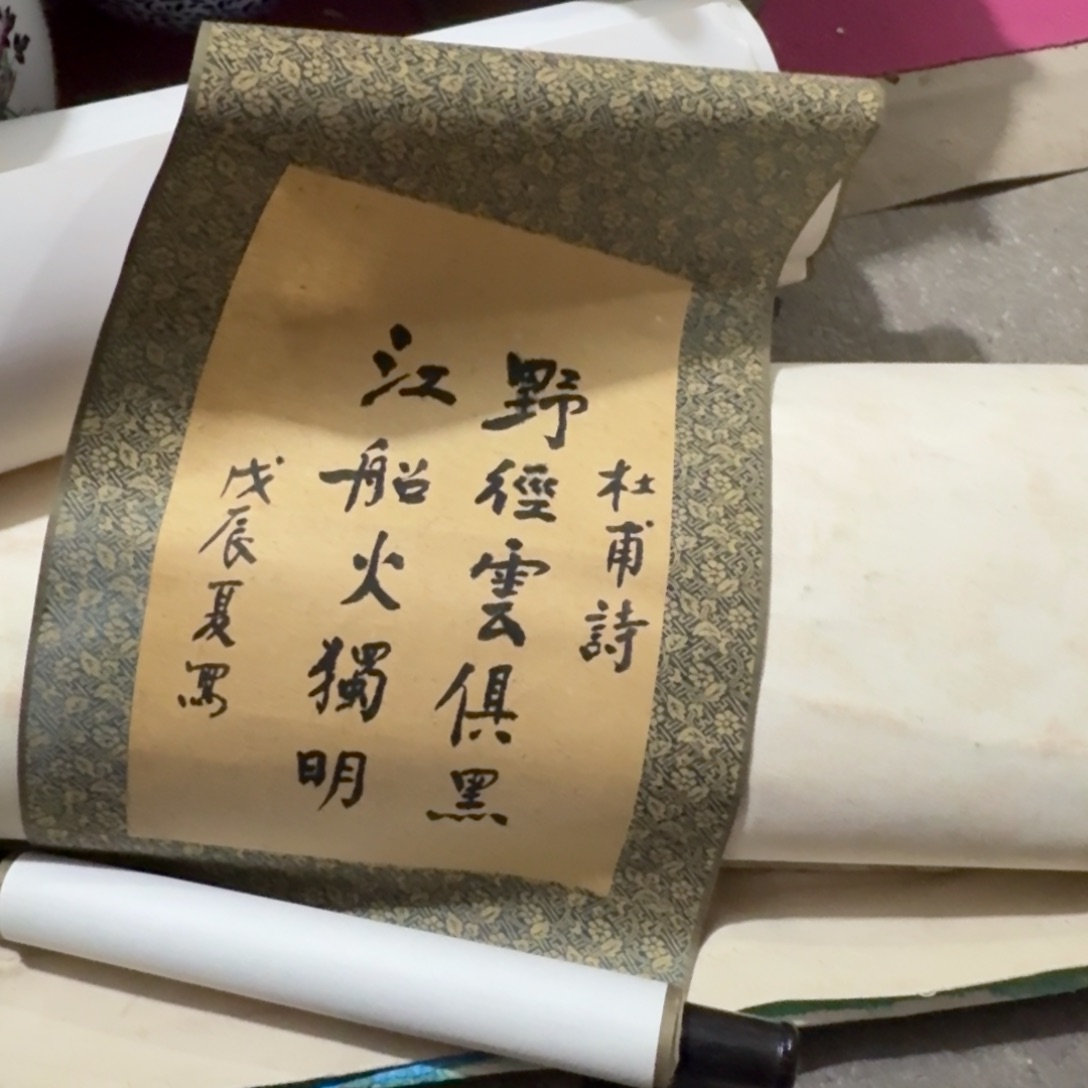 杜甫詩
野徑雲俱黑
江船火獨明
戊辰夏寫